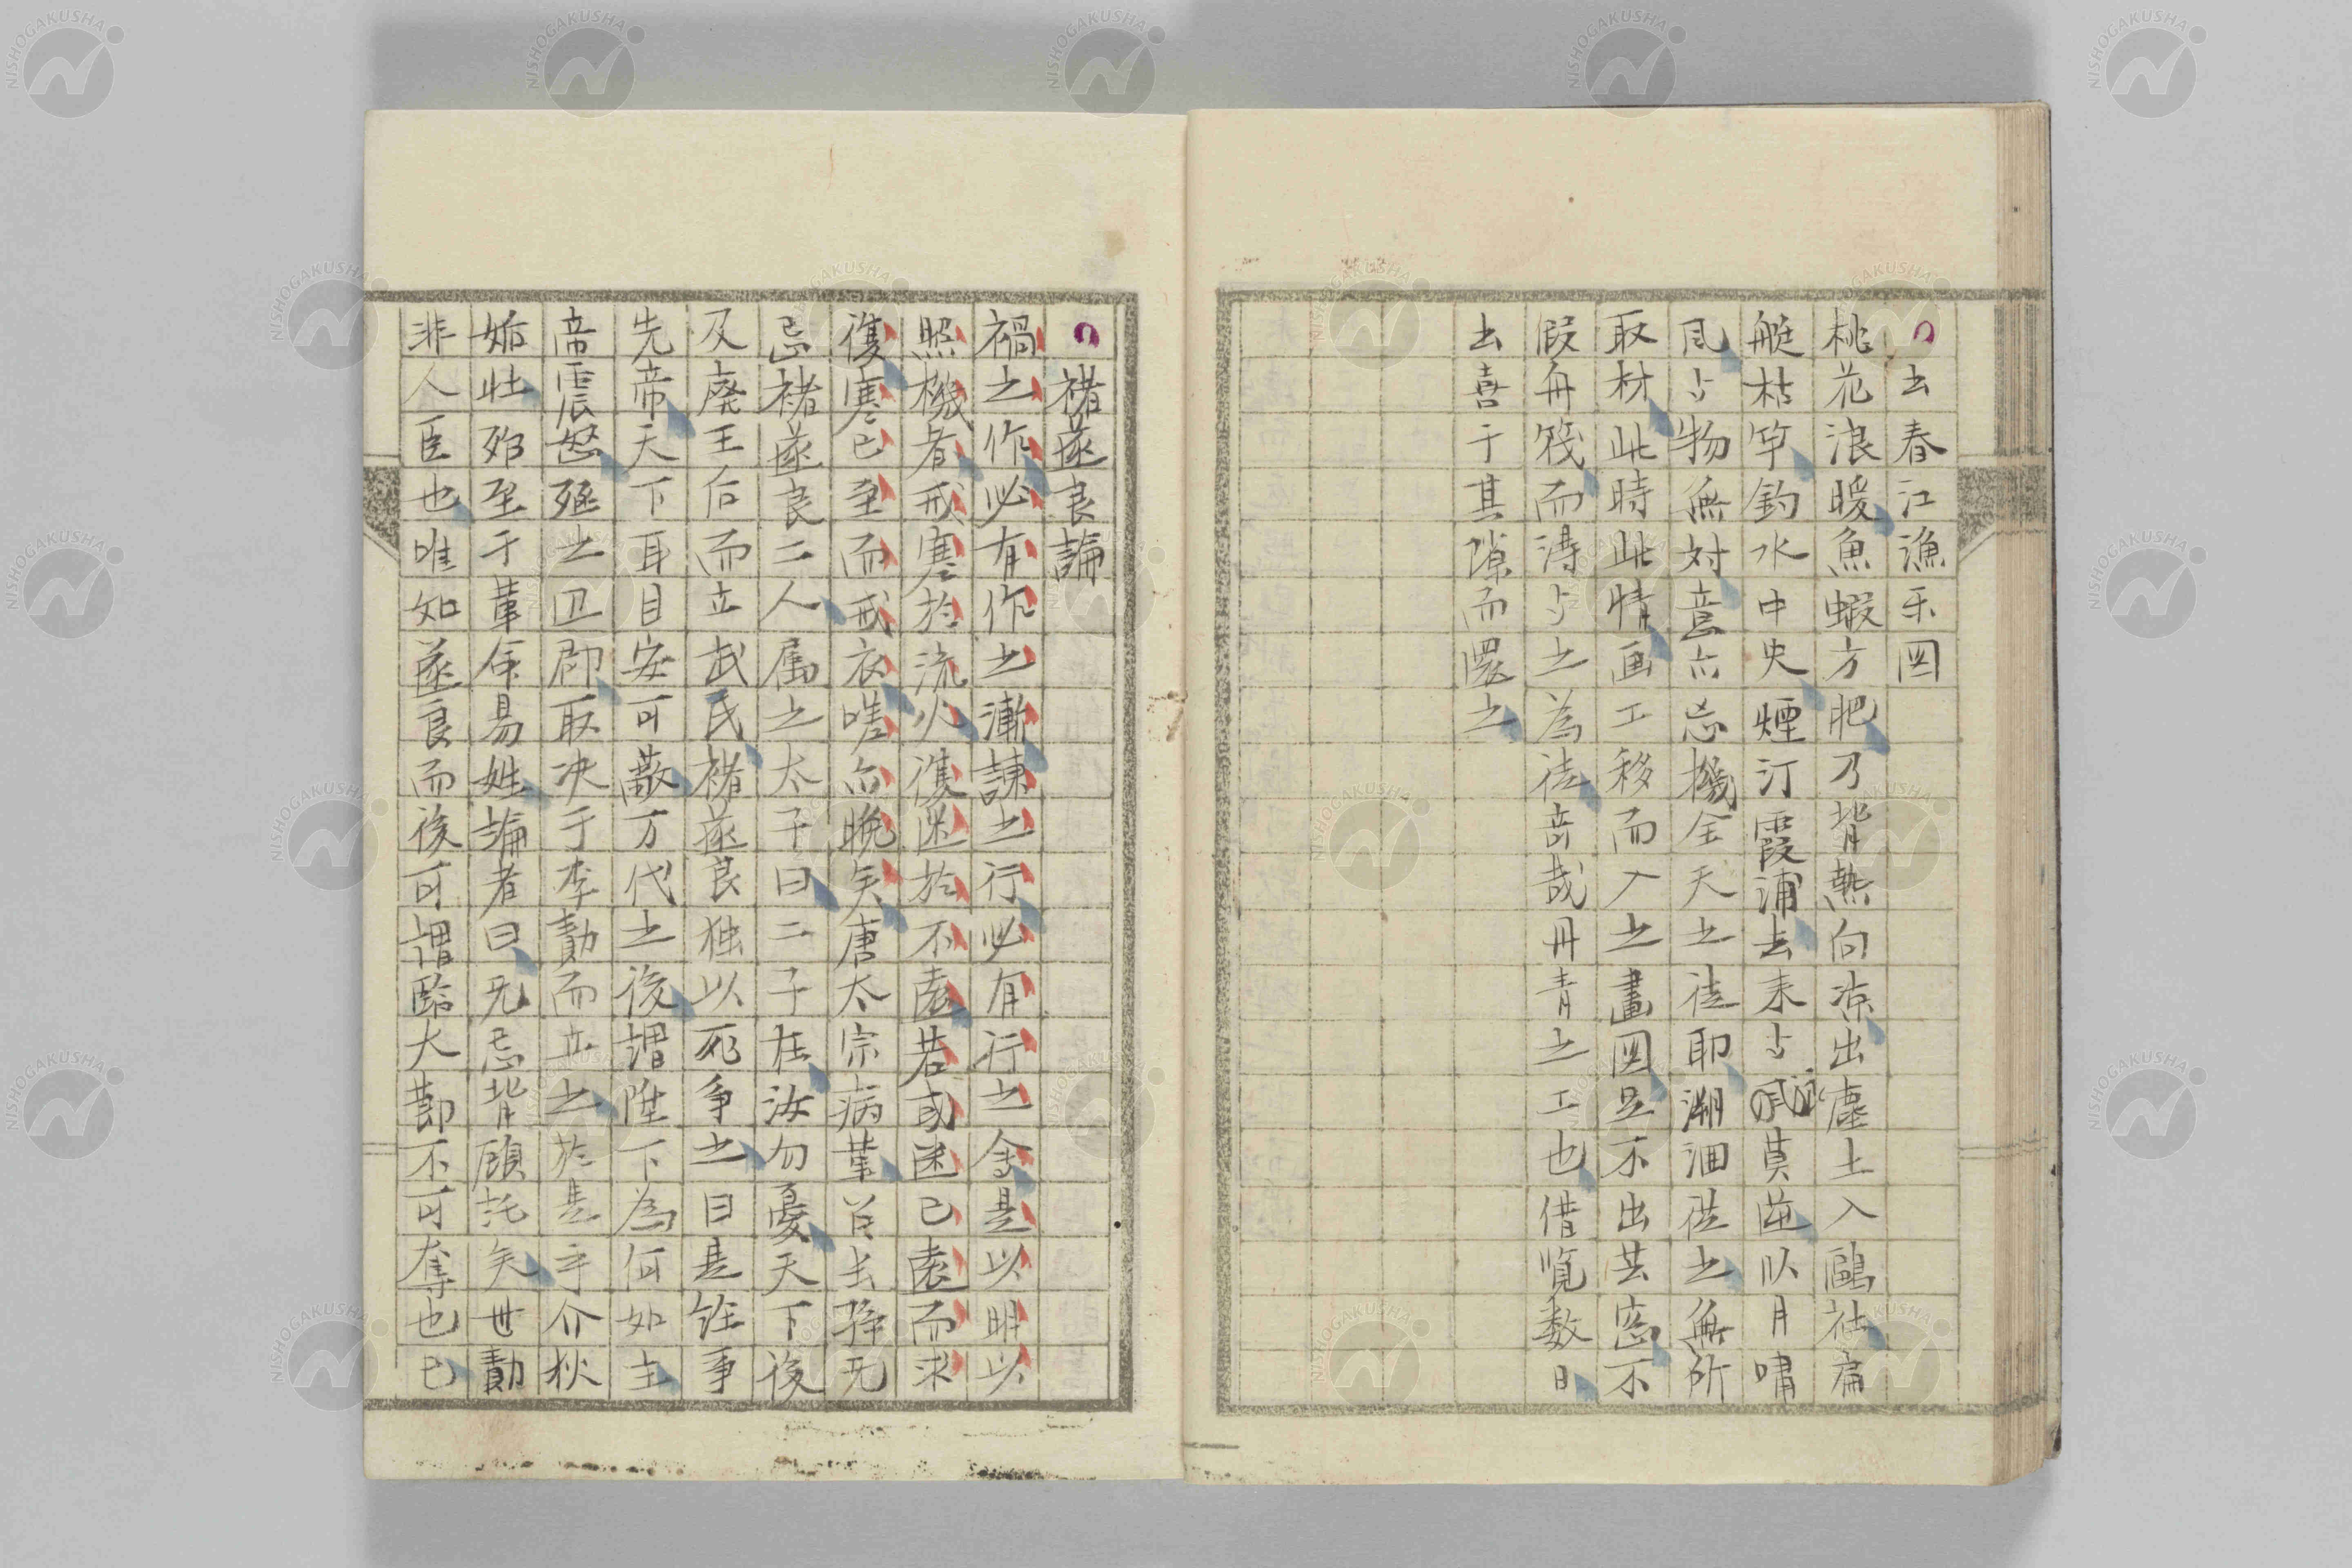 書春江漁乐図
桃花浪暖魚蝦方肥乃背熱向涼出塵土入鷗社扁
艇枯竿釣水中央煙汀霞浦去来与盟莫逆以月嘯
風与物無対意亦忘機全天之徒即溯洄従之無所
取材此時此情画工移而入之畫図足不出其窓不
假舟筏而得与之為徒奇哉丹青之工也借覧数日
書喜于其隙而還之
褚遂良論
禍之作必有作之漸諌之行必有行之會是以明以
照機者戒寒於流火復迷於不遠若或迷已遠而求
復寒已至而戒衣嗟亦晩矣唐太宗病革召長孫无
忌褚遂良二人属之太子曰二子在汝勿憂天下後
及廃王后而立武氏褚遂良独以死争之曰是争
先帝天下耳目安可蔽万代之後謂陛下為何如主
帝震怒殛之即取决于李勣而立之於是乎介狄
姤壮殆至于革命易姓論者曰无忌背顧托矣世勣
非人臣也唯如遂良而後可謂臨大節不可奪也已